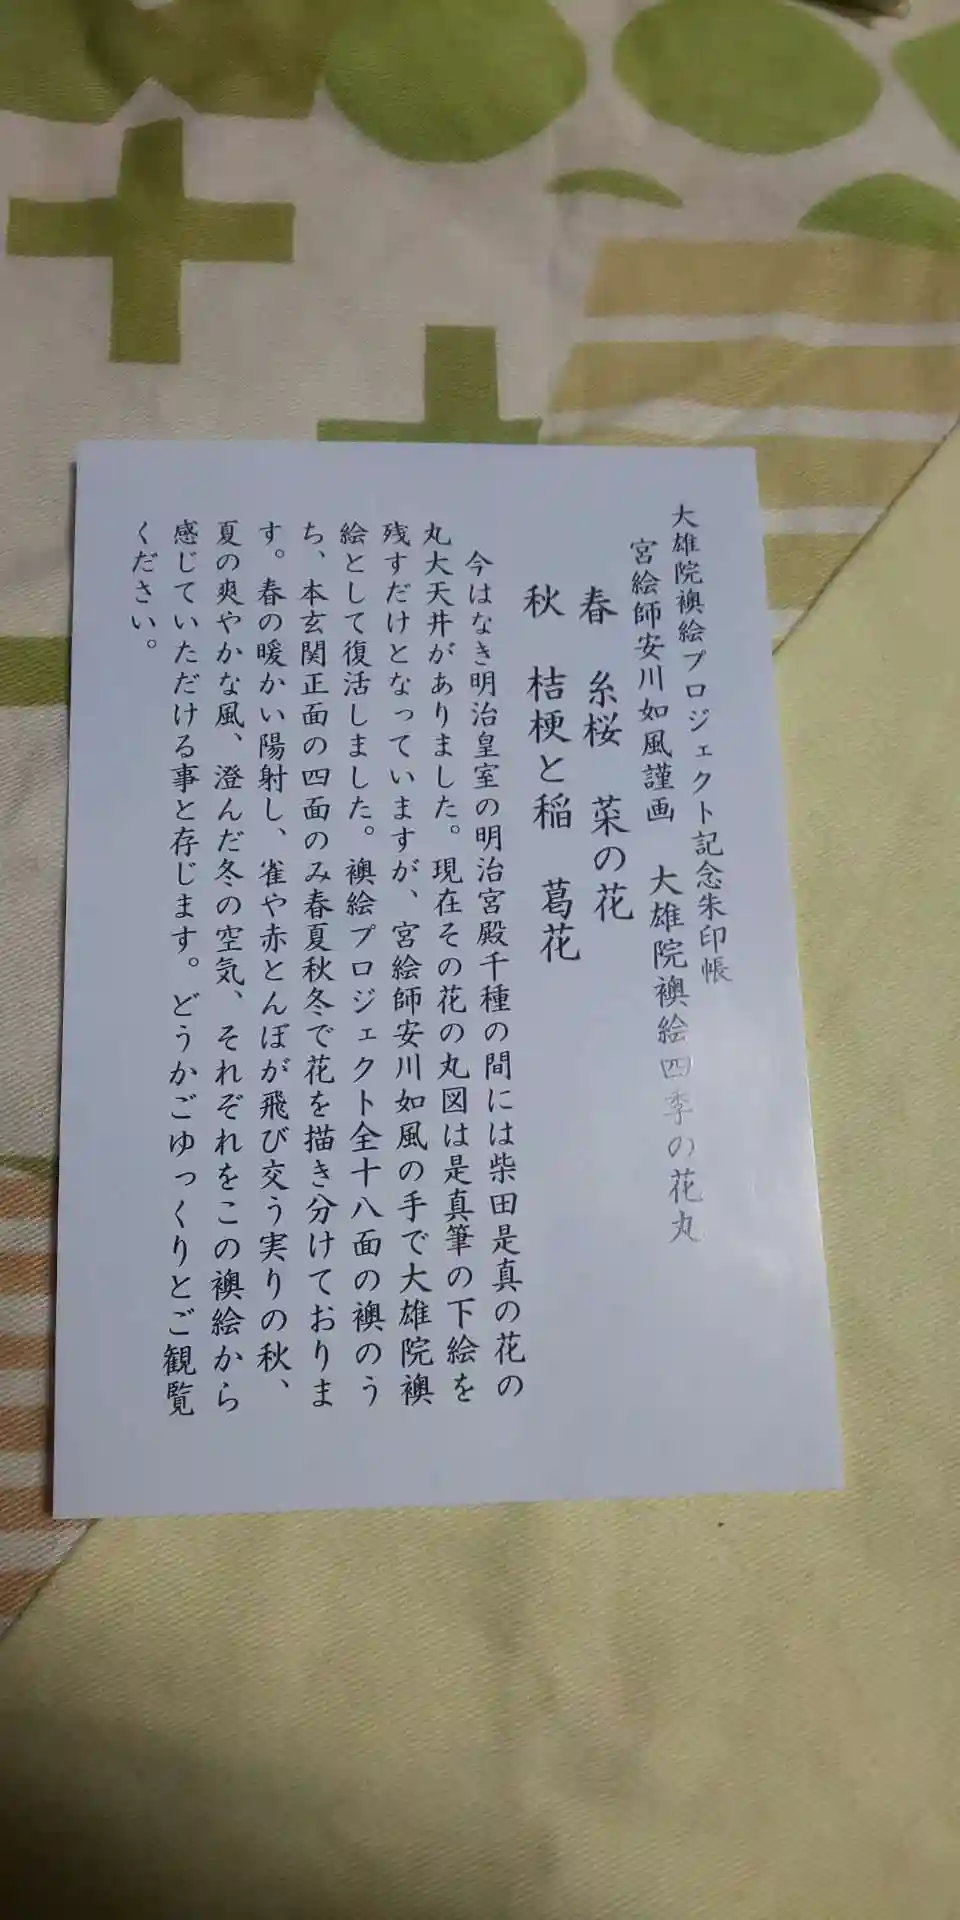 大雄院襖絵プロジェクト記念朱印帳
宮絵師安川如風謹画　大雄院襖絵四季の花丸
春　糸桜　菜の花
秋　桔梗と稲　葛花
今はなき明治皇室の明治宮殿千種の間には柴田是真の花の
丸大天井がありました。現在その花の丸図は是真筆の下絵を
残すだけとなっていますが、宮絵師安川如風の手で大雄院襖
絵として復活しました。襖絵プロジェクト全十八面の襖のう
ち、本玄関正面の四面のみ春夏秋冬で花を描き分けておりま
す。春の暖かい陽射し、雀や赤とんぼが飛び交う実りの秋、
夏の爽やかな風、澄んだ冬の空気、それぞれをこの襖絵から
感じていただける事と存じます。どうかごゆっくりとご観覧
ください。